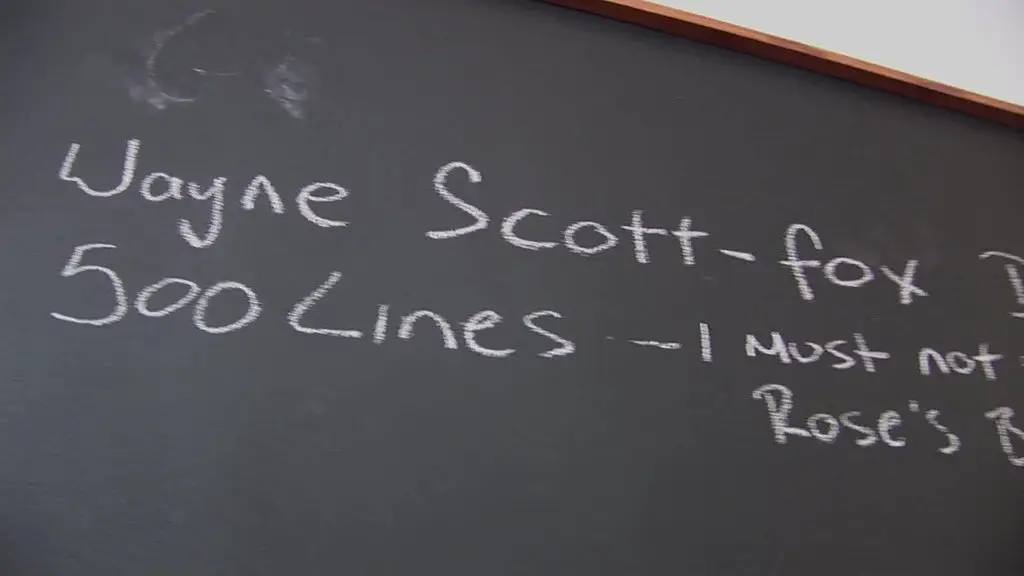 Wayne Scott-fox
500 Lines - I Must not
Rose's